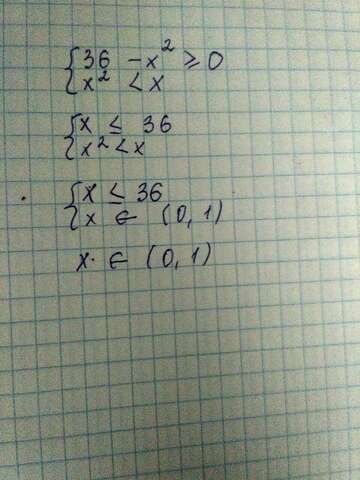 {36 - x² ≥ 0
{x² < x
{x ≤ 36
{x² < x
{x ≤ 36
{x ∈ (0, 1)
x ∈ (0, 1)